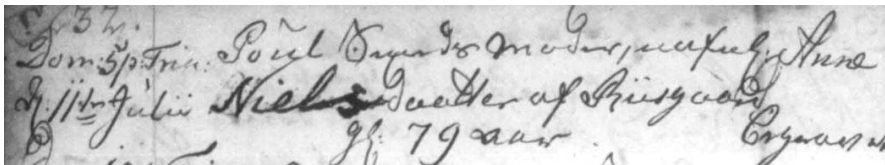 32.
Dom: 5 p. Trin: Poul Svends Moder, nafnl: Anne
d. 11te Julii Nielsdaatter af Riisgaard
gl: 79 aar Begravet